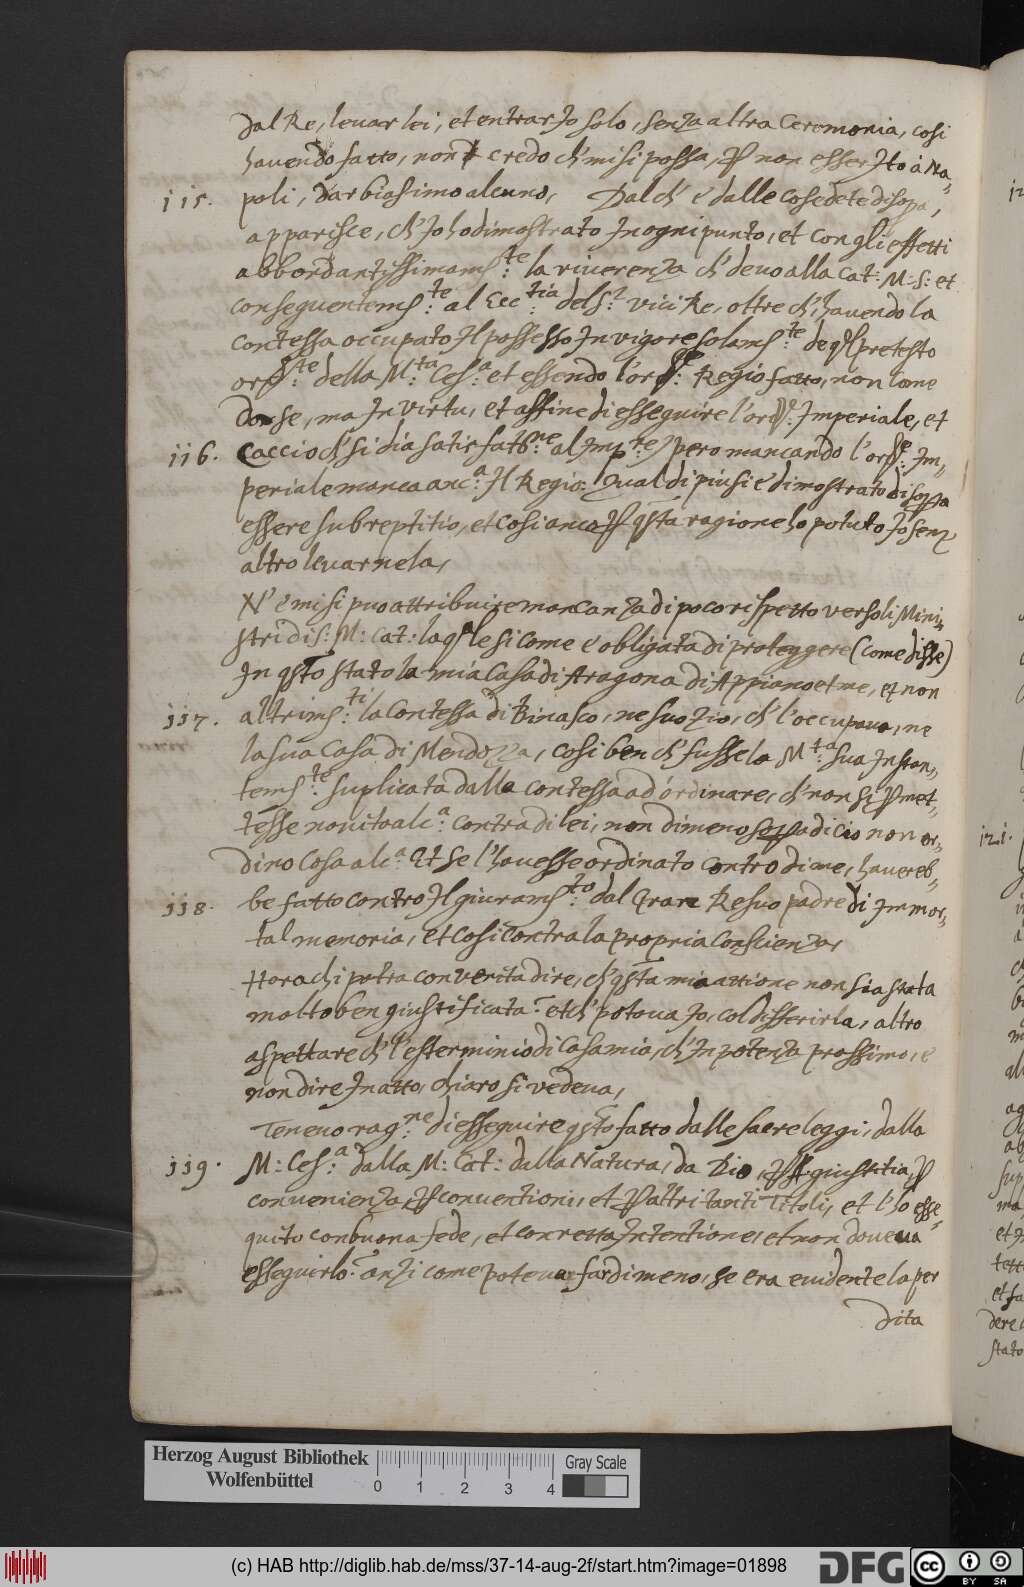 dal Re, levar lei, et entrar Jo solo, senza altra Ceremonia, cosi
havendo fatto, non credo ch' misi possa, non esser Jto à Na„
115. poli, dar biasimo alcuno, Dal ch' e dalle cose dete disopa,
apparisce, ch' Jo ho dimostrato In ogni punto, et con gli effetti
abbondantissimams:te la riverenza ch' devo alla Cat: M: S: et
conseguentems:te al Ecc:tia del S:r vici Re, oltre ch' havendo la
contessa occupato Il possesso In vigore solams:te de ql pretesto
della M:ta Ces:a et essendo l'ord:e Regio fatto, non come
da se, ma In virtu, et affine di esseguire l'ord: Imperiale, et
116. caccio ch' si dia satisfat:ne al Imp:re pero mancando l'ord:e Im„
periale manca anc:a Il Regio: Qual di piu si è dimostrato disoppa
essere subreptitio, et cosi anco qsta ragione ho potuto Jo senz
altro levarnela,
N'è mi si puo attribuire mancanza di poco rispetto verso li Mini„
stri di S: M: Cat: la qle si come è obligata di proteggere (come disse)
In qsto stato la mia Casa di Aragona di Appiano et me, et non
117. altrims:ti la Contessa di Binasco, ne suo Zio, ch' l'occupava, ne
la sua Casa di Mendozza, cosi ben ch' fusse la M:ta sua Instan„
tems:te suplicata dalla contessa ad órdinare, ch' non si pmet„
tesse novita alc:a contra di lei, non dimeno soppa di cio non or„
dino cosa alc:a Et se l'havesse ordinato contro di me, havereb„
118. be fatto contro Il giurams:to dal gran Re suo padre di Immor„
tal memoria, et cosi contra la propria conscienza,
Hora chi potra con verita dire, ch' qsta mia attione non sia stata
molto ben giustificata: et ch' potova Jo, col differirla, altro
aspettare ch' l'esterminio di Casa mia, ch' In potenza prossimo, e
non dire In atto, chiaro si vedeva,
Teneno rag:ne di esseguire qsto fatto dalle sacre leggi, dalla
119. M: Ces:a dalla M: Cat: dalla Natura, da Dio, giustitia, p
convenienza, p conventioni, et p altri tanti Titoli, et l'ho esse„
quito con buona fede, et con retta Intentione, et non doveva
esseguirlo: anzi come poteva far di meno, se era evidente la per
dita
12
121.
Herzog August Bibliothek
Wolfenbüttel
0 1 2 3 4
Gray Scale
(c) HAB http://diglib.hab.de/mss/37-14-aug-2f/start.htm?image=01898
DFG
cc BY SA